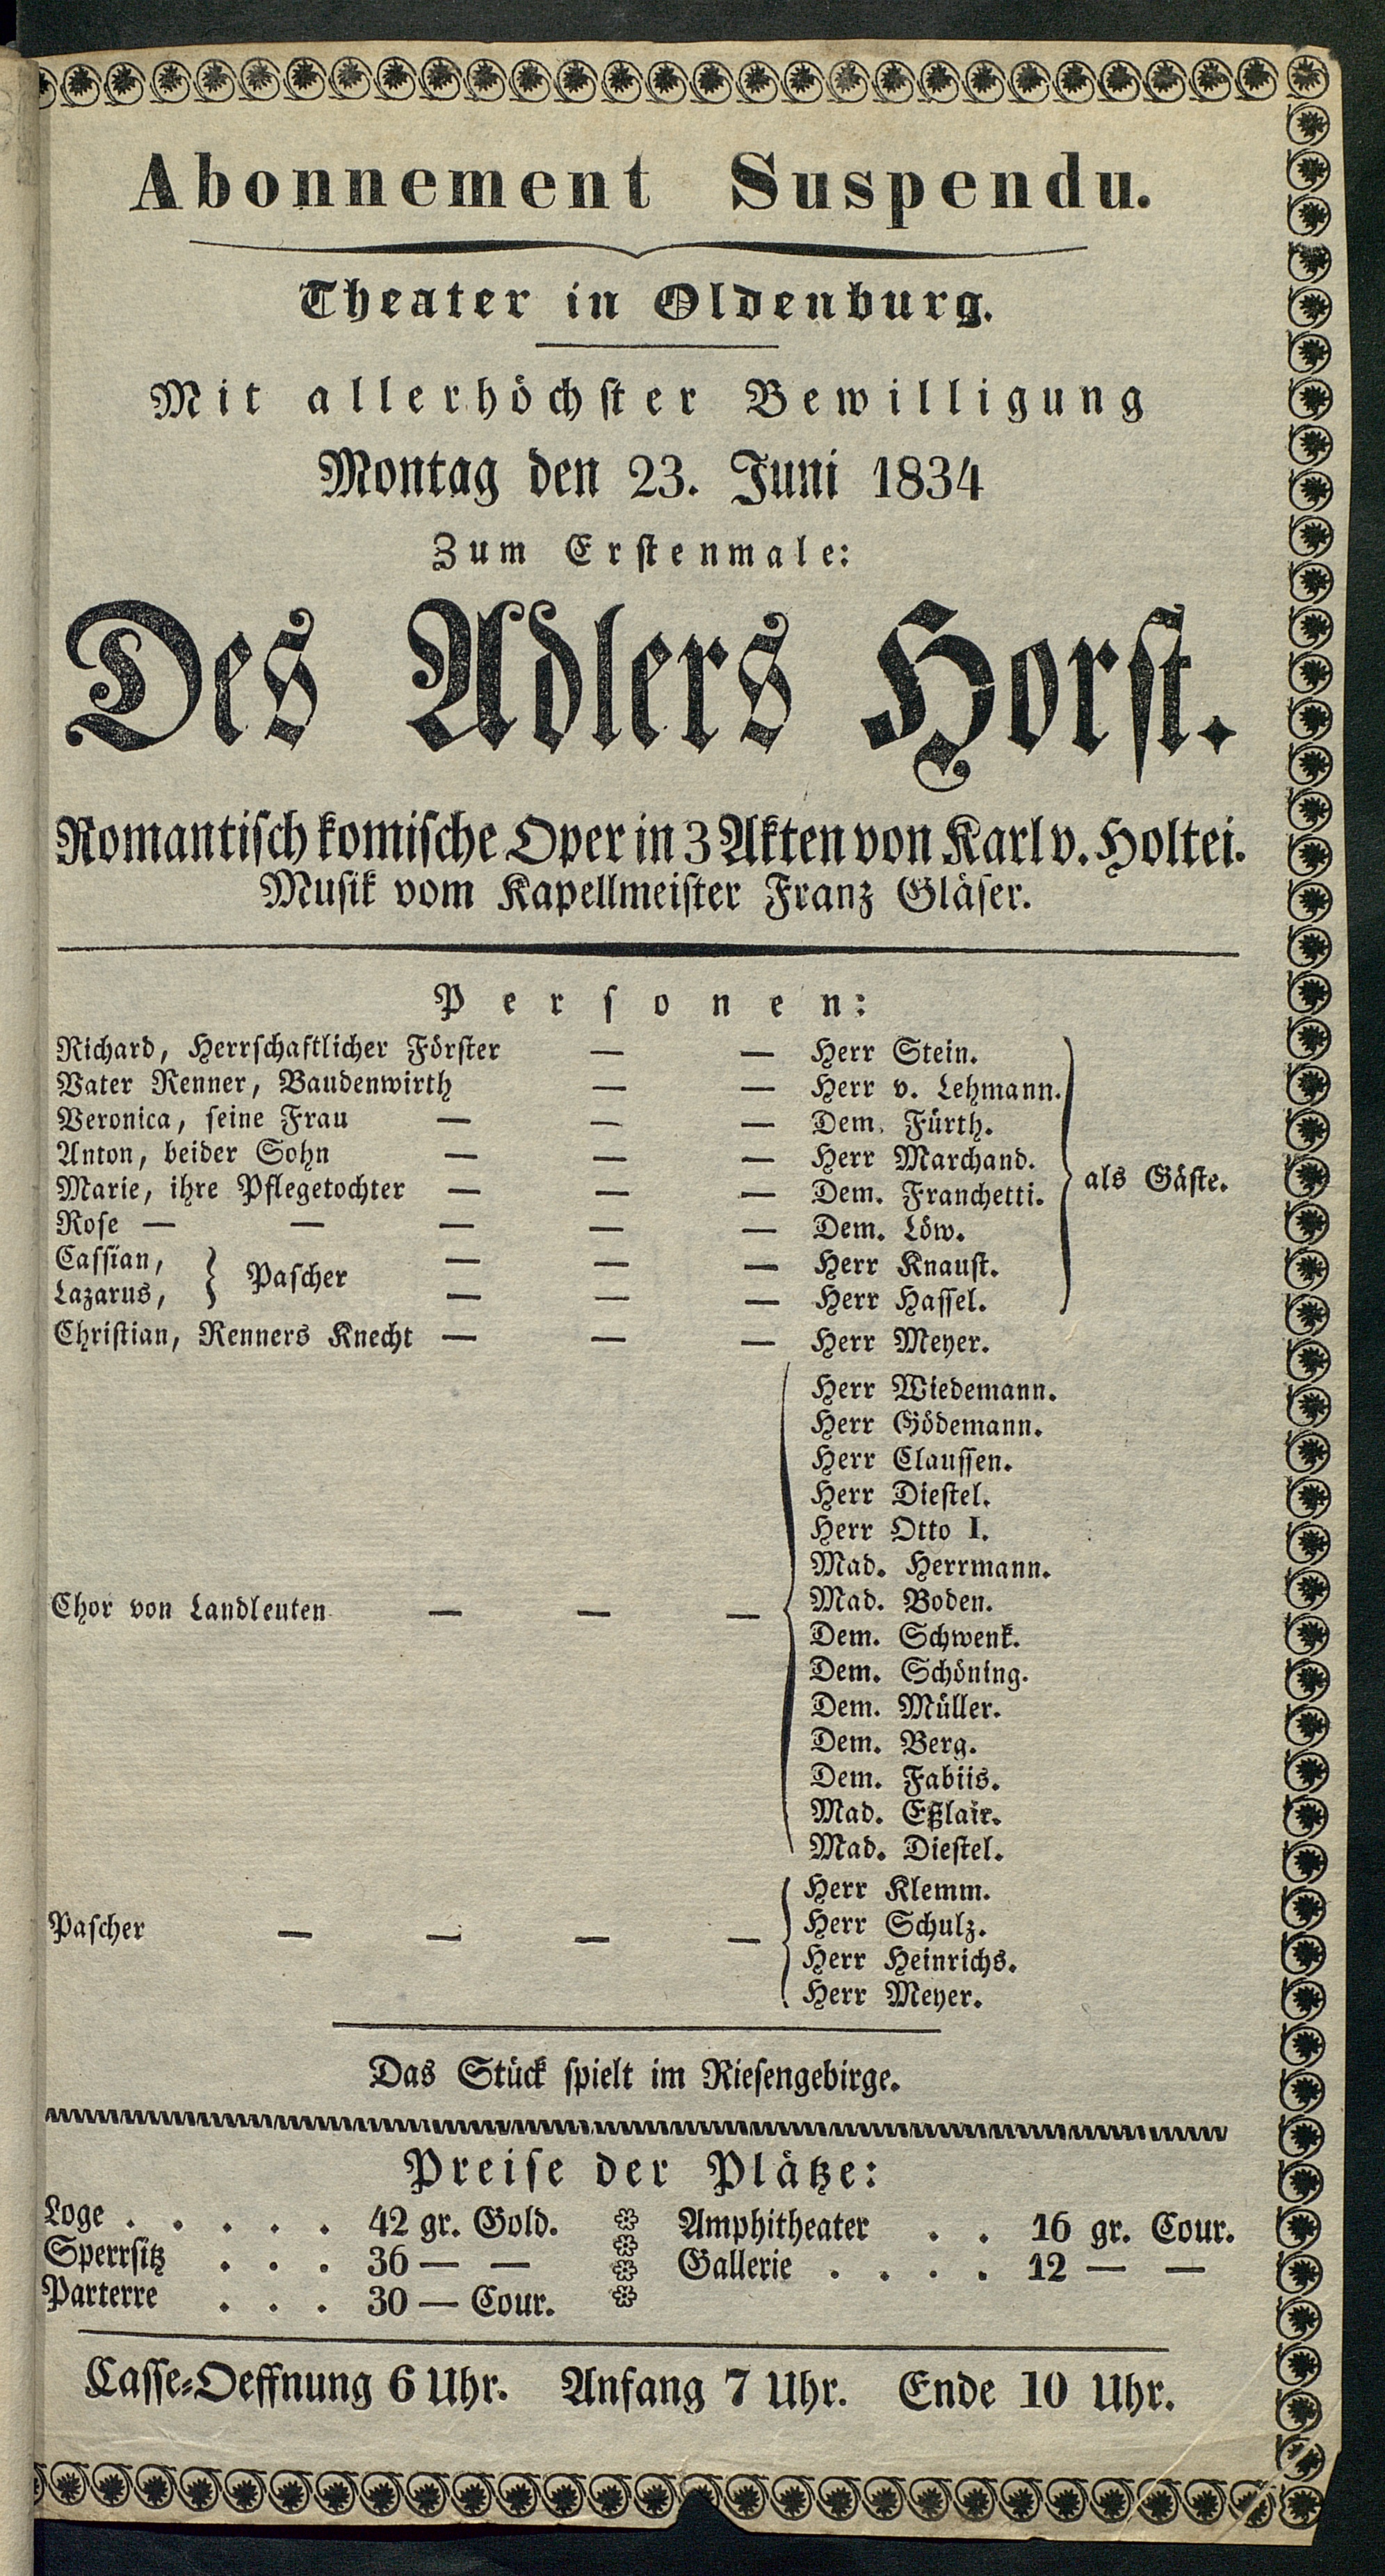 Abonnement Suspendu.
Theater in Oldenburg.
Mit allerhöchster Bewilligung
Montag den 23. Juni 1834
Zum Erstenmale:
Des Adlers Horst.
Romantisch komische Oper in 3 Akten von Karl v. Holtei.
Musik vom Kapellmeister Franz Gläser.
Personen:
Richard, Herrschaftlicher Förster — — Herr Stein.
Vater Renner, Baudenwirth — — Herr v. Lehmann.
Veronica, seine Frau — — — Dem. Fürth.
Anton, beider Sohn — — — Herr Marchand.
Marie, ihre Pflegetochter — — — Dem. Franchetti.
als Gäste.
Rose — — — — — Dem. Löw.
Cassian, — — — Herr Knaust.
Pascher
Lazarus, — — — Herr Hassel.
Christian, Renners Knecht — — — Herr Meyer.
Herr Wiedemann.
Herr Gödemann.
Herr Claussen.
Herr Diestel.
Herr Otto I.
Mad. Herrmann.
Chor von Landleuten — — — Mad. Boden.
Dem. Schwenk.
Dem. Schöning.
Dem. Müller.
Dem. Berg.
Dem. Fabiis.
Mad. Eßlair.
Mad. Diestel.
Herr Klemm.
Pascher — — — — Herr Schulz.
Herr Heinrichs.
Herr Meyer.
Das Stück spielt im Riesengebirge.
Preise der Plätze:
Loge . . . . . 42 gr. Gold.
Sperrsitz . . . 36 — —
Parterre . . . 30 — Cour.
Amphitheater . . 16 gr. Cour.
Gallerie . . . . 12 — —
Casse-Oeffnung 6 Uhr. Anfang 7 Uhr. Ende 10 Uhr.